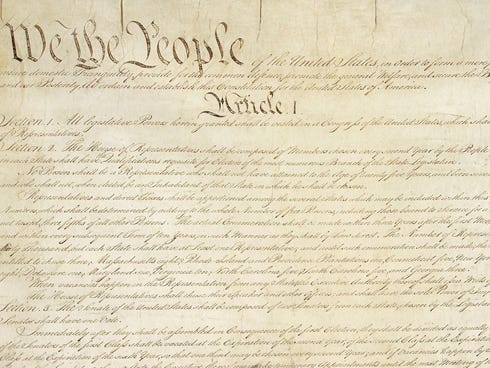 We the People of the United States, in order to form a more
insure domestic Tranquility, provide for the common defence, promote the general Welfare, and secure the
and our Posterity, do ordain and establish this Constitution for the United States of America.
Article. I.
Section. 1. All legislative Powers herein granted shall be vested in a Congress of the United States, which shall
of Representatives.
Section. 2. The House of Representatives shall be composed of Members chosen every second Year by the People
in each State shall have Qualifications requisite for Electors of the most numerous Branch of the State Legislature.
No Person shall be a Representative who shall not have attained to the Age of twenty five Years, and been seven
and who shall not, when elected, be an Inhabitant of that State in which he shall be chosen.
Representatives and direct Taxes shall be apportioned among the several States which may be included within this
Numbers, which shall be determined by adding to the whole Number of free Persons, including those bound to Service
not taxed, three fifths of all other Persons. The actual Enumeration shall be made within three Years after the first Meeting
subsequent Term of ten Years, in such Manner as they shall by Law direct. The Number of
thirty Thousand, but each State shall have at Least one Representative; and until such enumeration shall be made, the
entitled to chuse three, Massachusetts eight, Rhode Island and Providence Plantations one, Connecticut five, New York
eight, Delaware one, Maryland six, Virginia ten, North Carolina five, South Carolina five, and Georgia three.
When vacancies happen in the Representation from any State, the Executive Authority thereof shall issue Writs
The House of Representatives shall chuse their Speaker and other Officers; and shall have
Section. 3. The Senate of the United States shall be composed of two Senators from each State, chosen by the Legislature
Senator shall have one Vote.
Immediately after they shall be assembled in Consequence of the first Election, they shall be divided as equally
of the Senators of the first Class shall be vacated at the Expiration of the second Year, of the second Class at the Expiration
Class at the Expiration of the sixth Year, so that one third may be chosen every second Year; and if Vacancies happen by